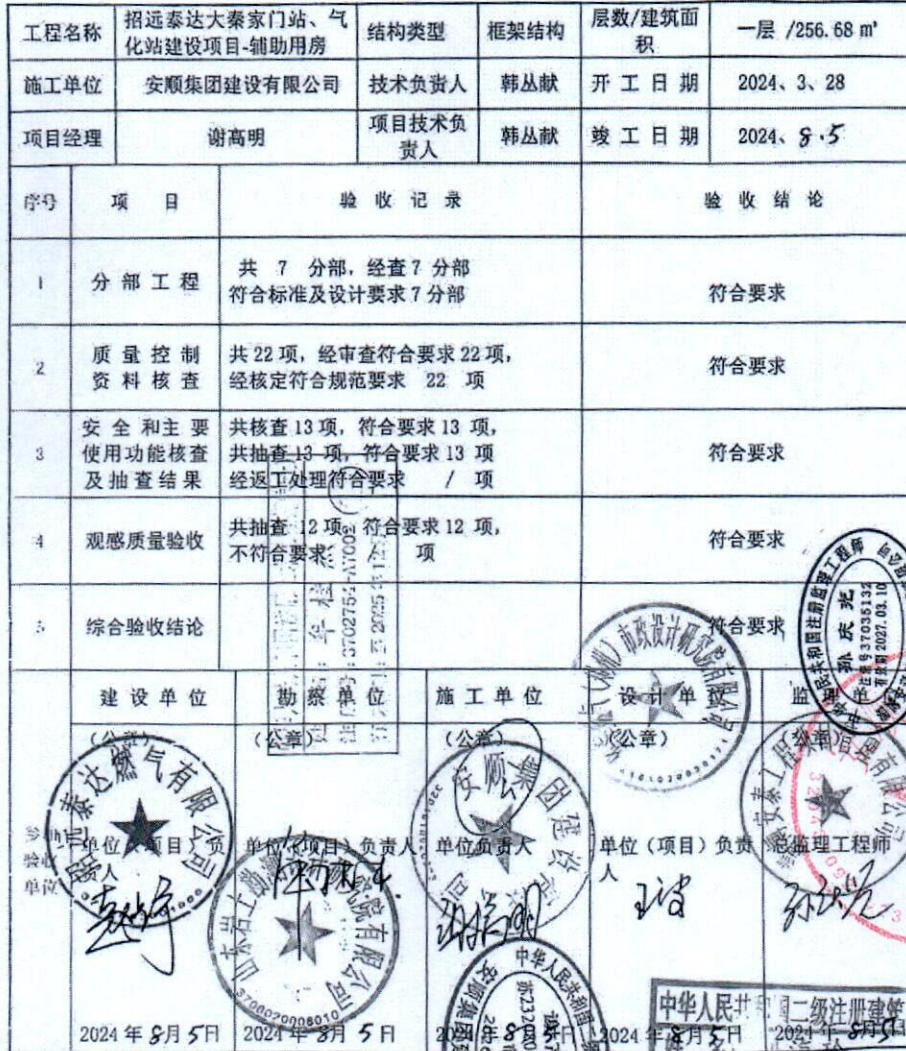 工程名称 招远泰达大秦家门站、气化站建设项目-辅助用房 结构类型 框架结构 层数/建筑面积 一层 /256.68 ㎡
施工单位 安顺集团建设有限公司 技术负责人 韩丛献 开工日期 2024、3、28
项目经理 谢高明 项目技术负责人 韩丛献 竣工日期 2024、8.5
序号 项 目 验 收 记 录 验 收 结 论
1 分部工程 共 7 分部，经查7 分部
符合标准及设计要求7 分部 符合要求
2 质量控制资料核查 共22项，经审查符合要求22项，
经核定符合规范要求 22 项 符合要求
3 安全和主要使用功能核查及抽查结果 共核查13项，符合要求13项，
共抽查13项，符合要求13项
经返工处理符合要求 / 项 符合要求
4 观感质量验收 共抽查 12项，符合要求12项，
不符合要求 / 项 符合要求
5 综合验收结论 符合要求
建设单位 勘察单位 施工单位 设计单位 监理单
（公章） （公章） （公章） （公章） （公章）
验收
单位
单位（项目）负责人 单位（项目）负责人 单位负责人 单位（项目）负责人 总监理工程师
王波
2024年8月5日 2024年8月5日 2024年8月5日 2024年8月5日 2024年8月5日
招远泰达燃气有限公司
3700020008010
安顺集团建设
市政设计研究院有限公司
中华人民共和国注册监理工程师
孙庆光
注册号37035132
有效期2027.03.10
中华人民共和国二级注册建筑